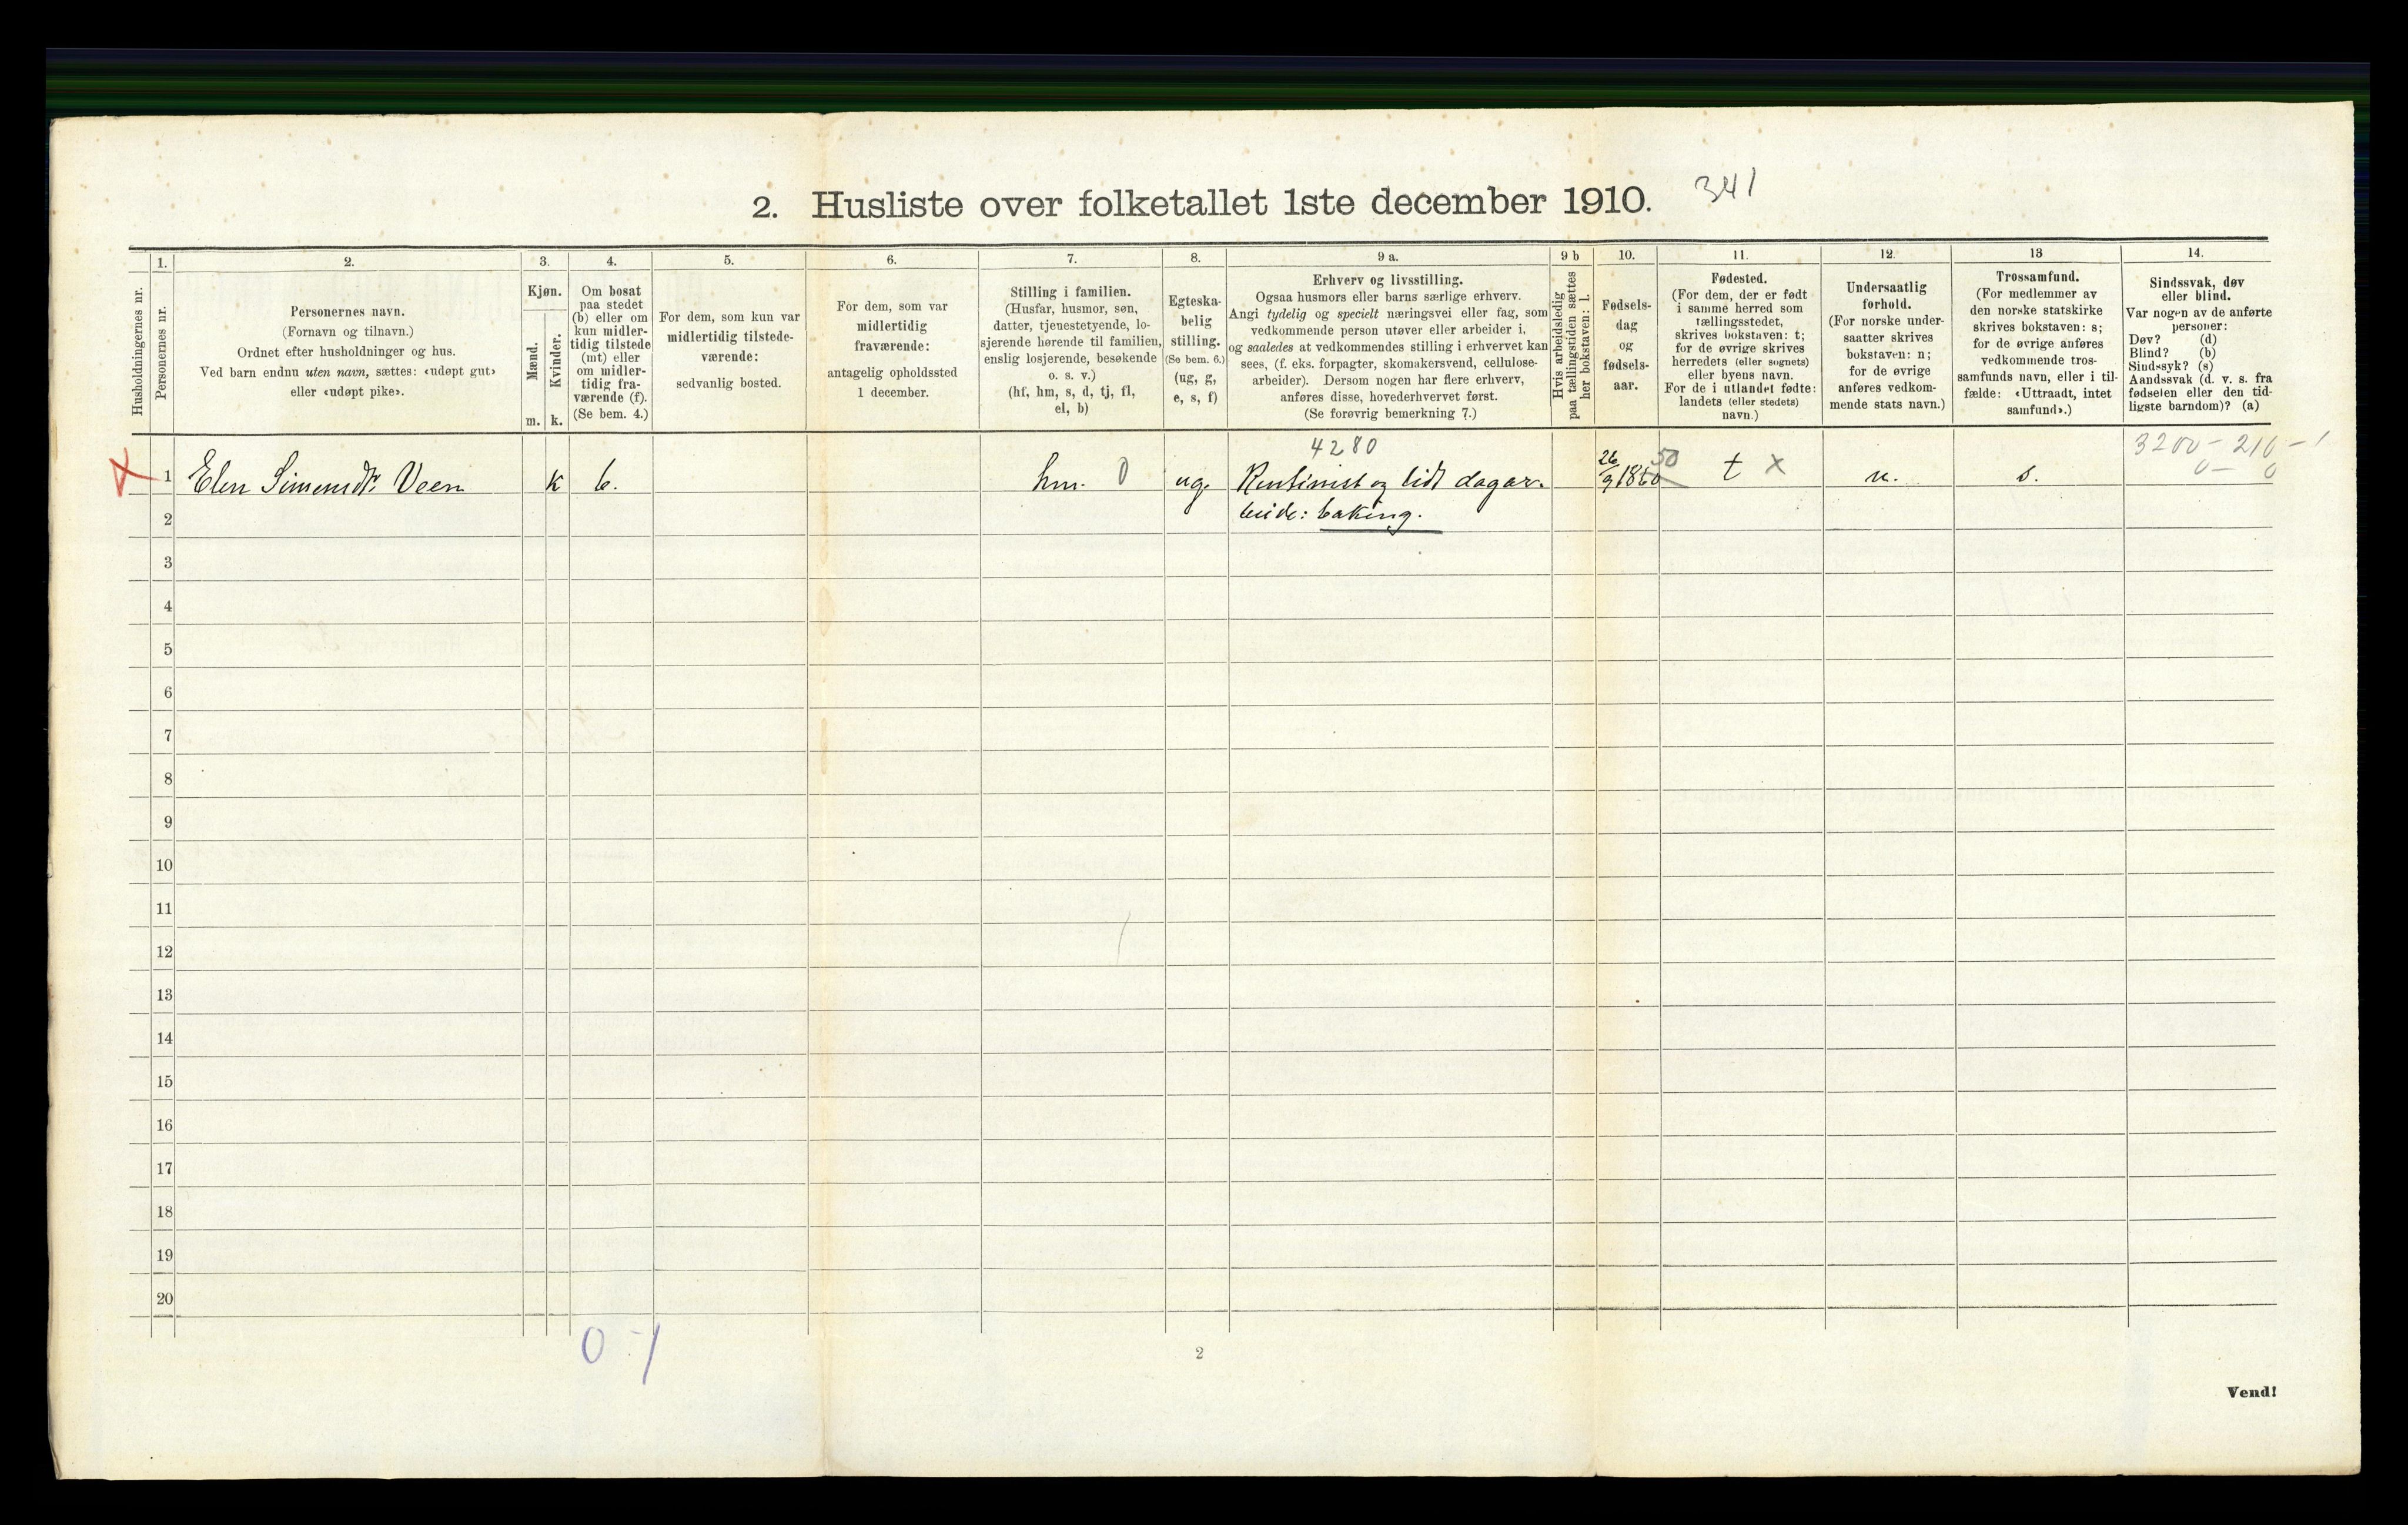 2. Husliste over folketallet 1ste december 1910. 341
Husholdningernes nr.
1.
Personernes nr.
2.
Personernes navn.
(Fornavn og tilnavn.)
Ordnet efter husholdninger og hus.
Ved barn endnu uten navn, sættes: «udøpt gut»
eller «udøpt pike».
3.
Kjøn.
Mænd.
Kvinder.
m. k.
4.
Om bosat
paa stedet
(b) eller om
kun midler-
tidig tilstede
(mt) eller
om midler-
tidig fra-
værende (f).
(Se bem. 4.)
5.
For dem, som kun var
midlertidig tilstede-
værende:
sedvanlig bosted.
6.
For dem, som var
midlertidig
fraværende:
antagelig opholdssted
1 december.
7.
Stilling i familien.
(Husfar, husmor, søn,
datter, tjenestetyende, lo-
sjerende hørende til familien,
enslig losjerende, besøkende
o. s. v.)
(hf, hm, s, d, tj, fl,
el, b)
8.
Egteska-
belig
stilling.
(Se bem. 6.)
(ug, g,
e, s, f)
9 a.
Erhverv og livsstilling.
Ogsaa husmors eller barns særlige erhverv.
Angi tydelig og specielt næringsvei eller fag, som
vedkommende person utøver eller arbeider i,
og saaledes at vedkommendes stilling i erhvervet kan
sees, (f. eks. forpagter, skomakersvend, cellulose-
arbeider). Dersom nogen har flere erhverv,
anføres disse, hovederhvervet først.
(Se forøvrig bemerkning 7.)
9 b
Hvis arbeidsledig
paa tællingstiden sættes
her bokstaven: l.
10.
Fødsels-
dag
og
fødsels-
aar.
11.
Fødested.
(For dem, der er født
i samme herred som
tællingsstedet,
skrives bokstaven: t;
for de øvrige skrives
herredets (eller sognets)
eller byens navn.
For de i utlandet fødte:
landets (eller stedets)
navn.)
12.
Undersaatlig
forhold.
(For norske under-
saatter skrives
bokstaven: n;
for de øvrige
anføres vedkom-
mende stats navn.)
13
Trossamfund.
(For medlemmer av
den norske statskirke
skrives bokstaven: s;
for de øvrige anføres
vedkommende tros-
samfunds navn, eller i til-
fælde: «Uttraadt, intet
samfund».)
14.
Sindssvak, døv
eller blind.
Var nogen av de anførte
personer:
Døv? (d)
Blind? (b)
Sindssyk? (s)
Aandssvak (d. v. s. fra
fødselen eller den tid-
ligste barndom)? (a)
4280
3200 - 210 - 1
0 - 0
1 Elen Simensdtr. Veen k b. hm. 0 ug. Rentinist og lidt dagar- 26/9 1860 50 t x n. s.
beide: baking.
2
3
4
5
6
7
8
9
10
11
12
13
14
15
16
17
18
19
20
0 - 1
2
Vend!